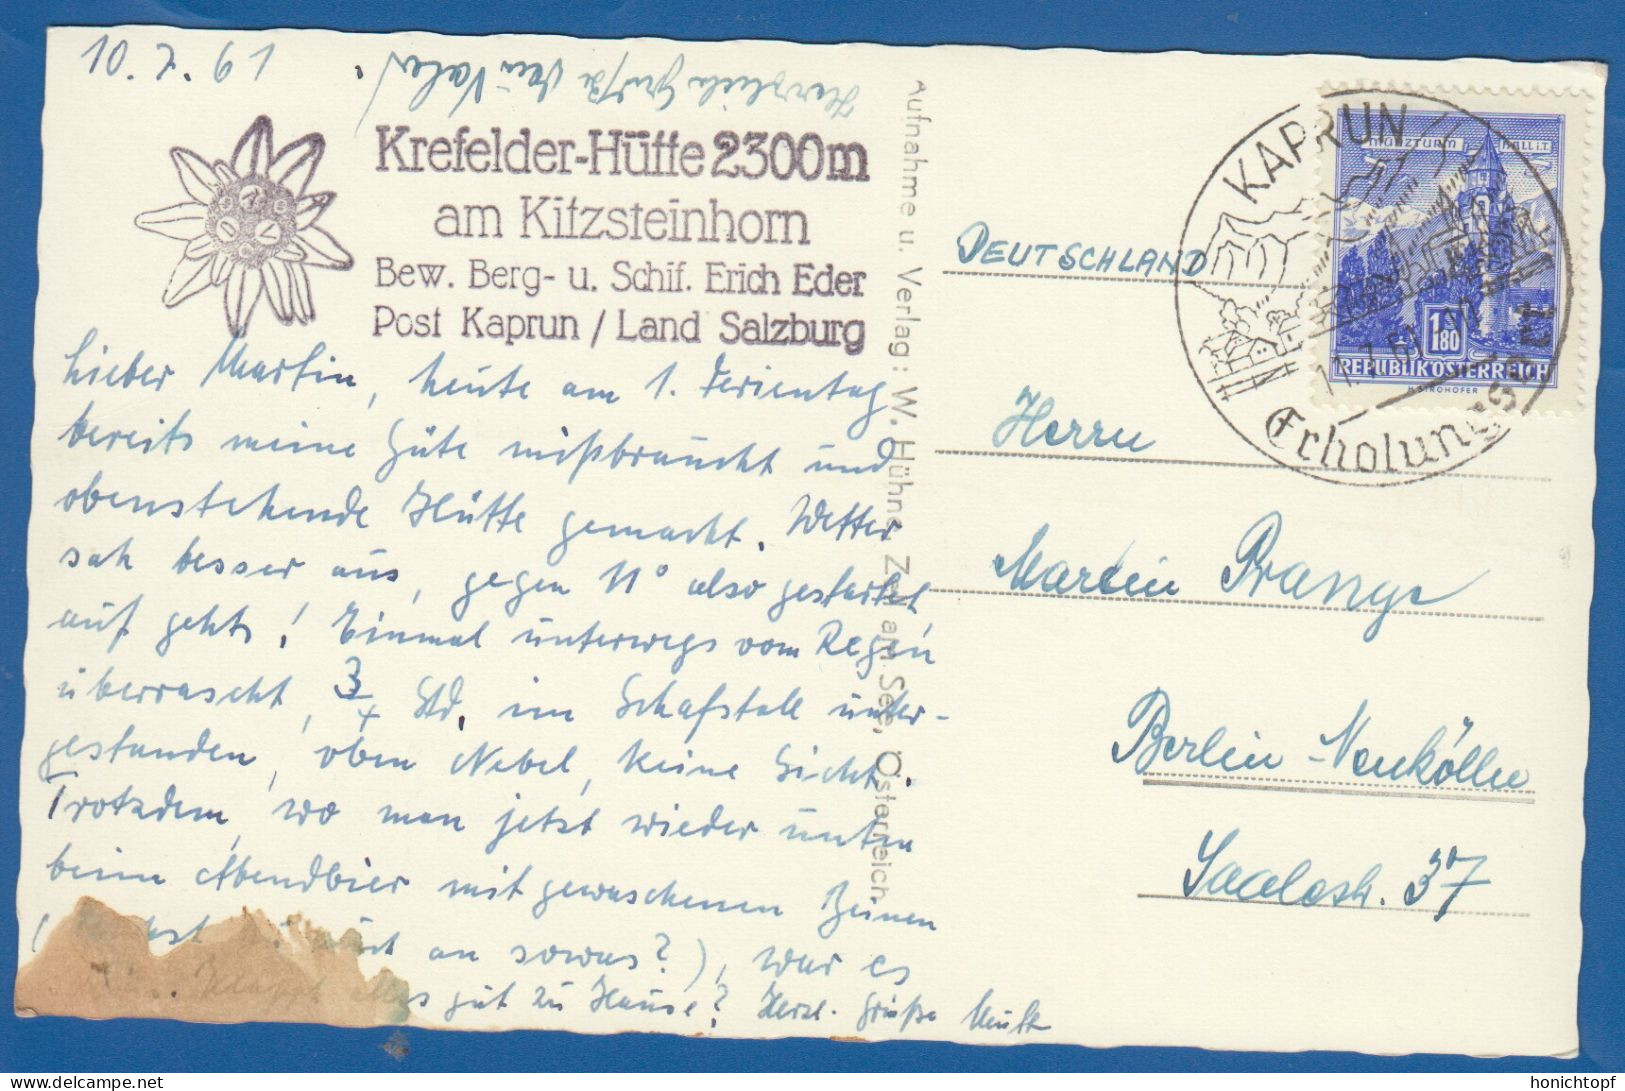 10.7.61
Herzliche Grüße
Krefelder-Hütte 2300m
am Kitzsteinhorn
Bew. Berg- u. Schif. Erich Eder
Post Kaprun / Land Salzburg
Lieber Martin, heute am 1. Ferientag
bereits meine Güte mißbraucht und
obenstehende Hütte gemacht. Wetter
sah besser aus, gegen 11° also gestartet,
auf gehts! Einmal unterwegs vom Regen
überrascht, 3/4 Std. im Schafstall unter-
gestanden, oben Nebel, keine Sicht.
Trotzdem, wo man jetzt wieder unten
beim Abendbier mit gewaschenen Beinen
an sowas?), war es
gut zu Hause? Herzl. Grüße
Aufnahme u. Verlag: W. Hühne, Zell am See, Österreich
DEUTSCHLAND
Herrn
Martin Prange
Berlin-Neukölln
Saalestr. 37
KAPRUN
11.7.61
Erholungsort
MÜNZTURM HALL i.T.
1.80
REPUBLIK ÖSTERREICH
H. STROHOFER
honichtopf